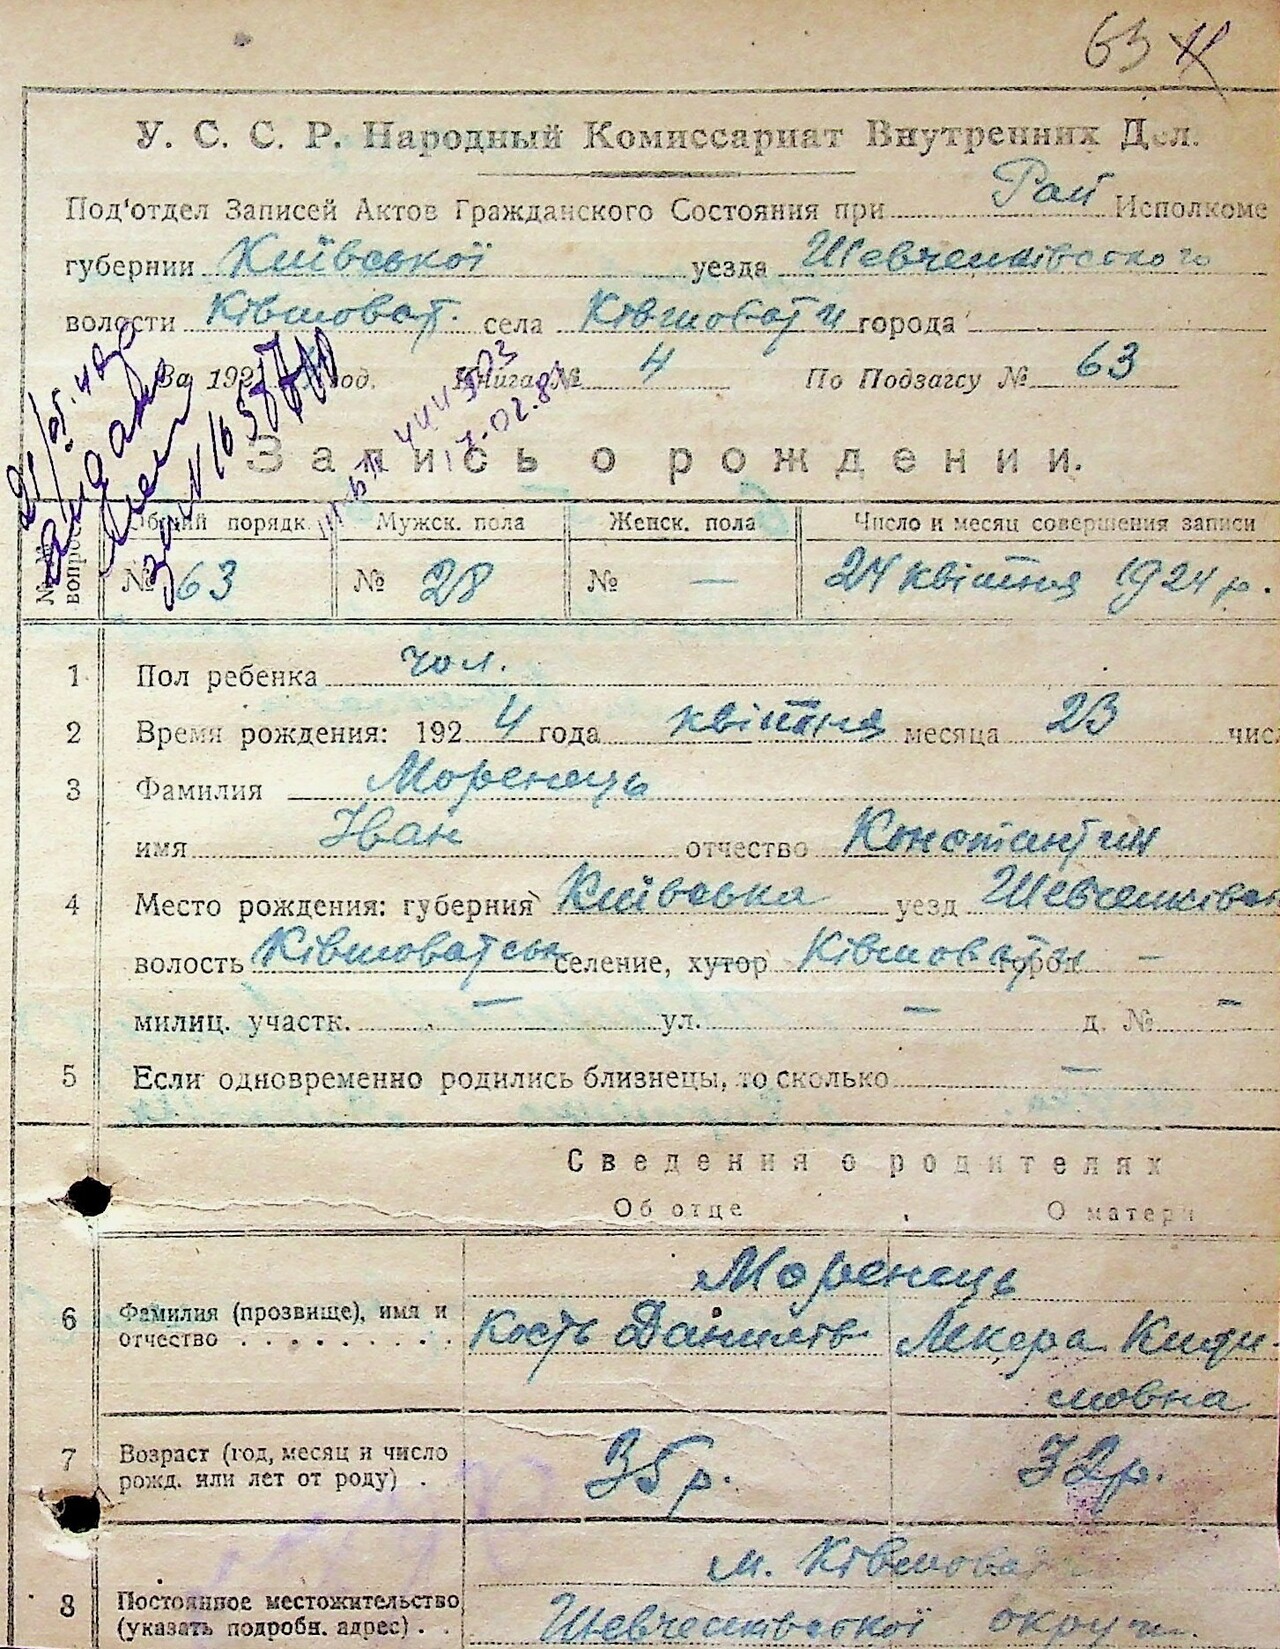 63
У. С. С. Р. Народный Комиссариат Внутренних Дел.
Под'отдел Записей Актов Гражданского Состояния при Рай Исполкоме
губернии Київської уезда Шевченківського
волости Ківшоват. села Ківшовати города
За 192 год. Книга № 4 По Подзагсу № 63
444503
Запись о рождении.
№№ вопрос
Общий порядк. Мужск. пола Женск. пола Число и месяц совершения записи
№ 63 № 28 № — 24 квітня 1924 р.
1 Пол ребенка чол.
2 Время рождения: 1924 года квітня месяца 23 чис
3 Фамилия Моренець
имя Іван отчество Константин
4 Место рождения: губерния Київська уезд Шевченківськ
волость Ківшоватськ селение, хутор Ківшовати город —
милиц. участк. — ул. — д. № —
5 Если одновременно родились близнецы, то сколько —
Сведения о родителях
Об отце О матери
Моренець
6 Фамилия (прозвище), имя и
отчество . . . . . . . . . Кость Данилів Лікера Киди-
мовна
7 Возраст (год, месяц и число
рожд. или лет от роду) . 35 р. 32 р.
м. Ківшовата
8 Постоянное местожительство
(указать подробн. адрес) . . Шевченківської округи.